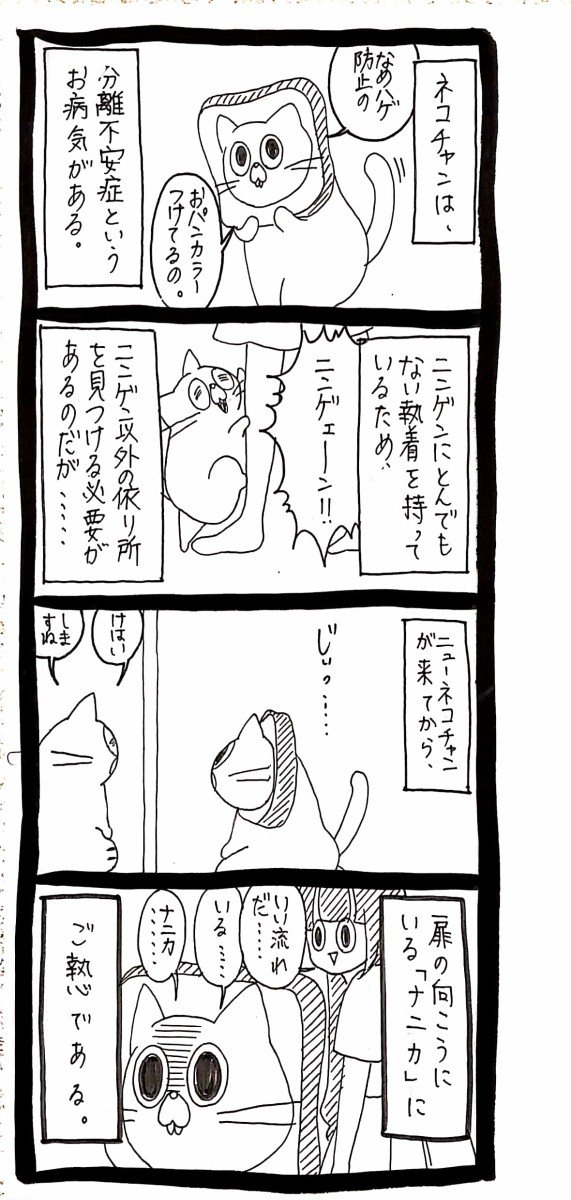 ネコチャンは、
なめハゲ
防止の
おパンカラー
つけてるの。
分離不安症という
お病気がある。
ニンゲンにとんでも
ない執着を持って
いるため、
ニンゲェーン!!
ニンゲン以外の依り所
を見つける必要が
あるのだが……
ニューネコチャン
が来てから、
じぃっ……
けはい
しま
すね
扉の向こうに
いる「ナニカ」に
いい流れ
だ……
いる……
ナニカ
……
ご執心である。